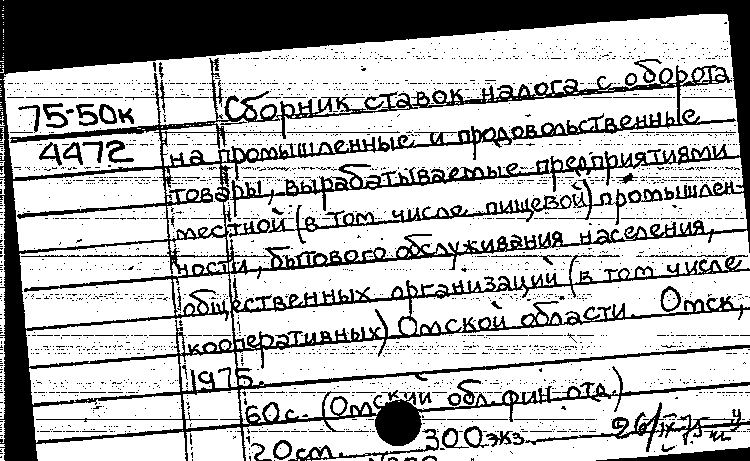 75-50к
4472
Сборник ставок налога с оборота
на промышленные и продовольственные
товары, вырабатываемые предприятиями
местной (в том числе пищевой) промышлен-
ности, бытового обслуживания населения,
общественных организаций (в том числе
кооперативных) Омской области. Омск,
1975.
60с. (Омский обл. фин. отд.)
20см. 300экз. 26/IX-75